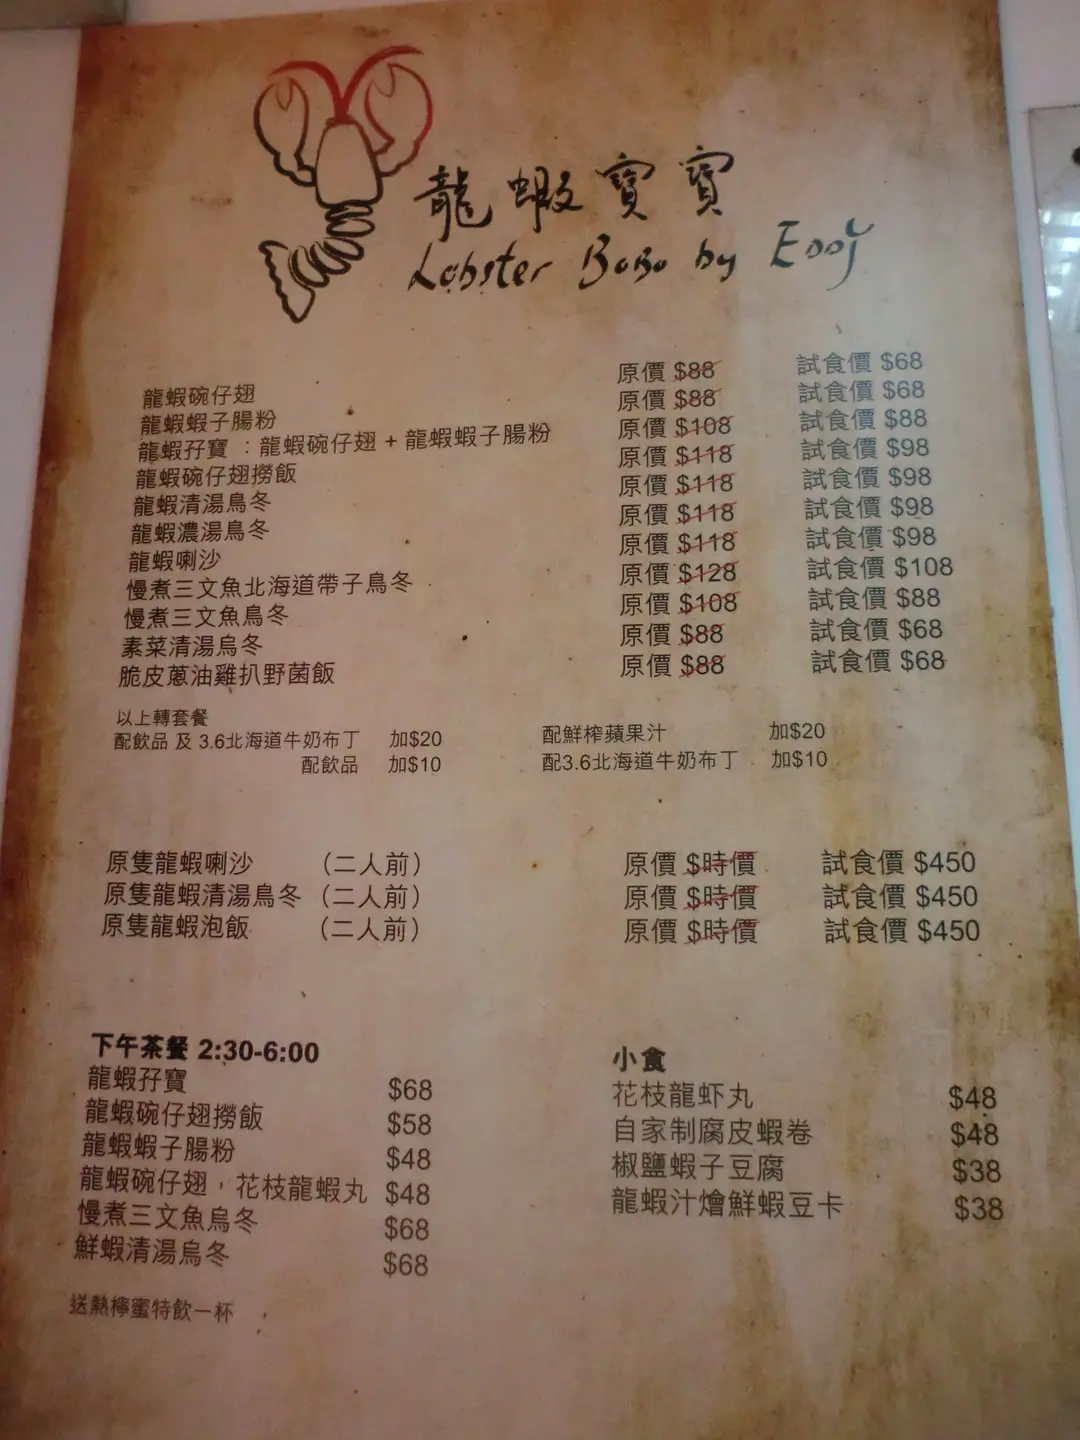 龍蝦寶寶
Lobster BoBo by Eddy
龍蝦碗仔翅 原價 $88 試食價 $68
龍蝦蝦子腸粉 原價 $88 試食價 $68
龍蝦孖寶 : 龍蝦碗仔翅 + 龍蝦蝦子腸粉 原價 $108 試食價 $88
龍蝦碗仔翅撈飯 原價 $118 試食價 $98
龍蝦清湯鳥冬 原價 $118 試食價 $98
龍蝦濃湯鳥冬 原價 $118 試食價 $98
龍蝦喇沙 原價 $118 試食價 $98
慢煮三文魚北海道帶子鳥冬 原價 $128 試食價 $108
慢煮三文魚鳥冬 原價 $108 試食價 $88
素菜清湯烏冬 原價 $88 試食價 $68
脆皮蔥油雞扒野菌飯 原價 $88 試食價 $68
以上轉套餐
配飲品 及 3.6北海道牛奶布丁 加$20 配鮮榨蘋果汁 加$20
配飲品 加$10 配3.6北海道牛奶布丁 加$10
原隻龍蝦喇沙 （二人前） 原價 $時價 試食價 $450
原隻龍蝦清湯鳥冬 （二人前） 原價 $時價 試食價 $450
原隻龍蝦泡飯 （二人前） 原價 $時價 試食價 $450
下午茶餐 2:30-6:00
龍蝦孖寶 $68
龍蝦碗仔翅撈飯 $58
龍蝦蝦子腸粉 $48
龍蝦碗仔翅，花枝龍蝦丸 $48
慢煮三文魚烏冬 $68
鮮蝦清湯烏冬 $68
送熱檸蜜特飲一杯
小食
花枝龍虾丸 $48
自家制腐皮蝦卷 $48
椒鹽蝦子豆腐 $38
龍蝦汁燴鮮蝦豆卡 $38